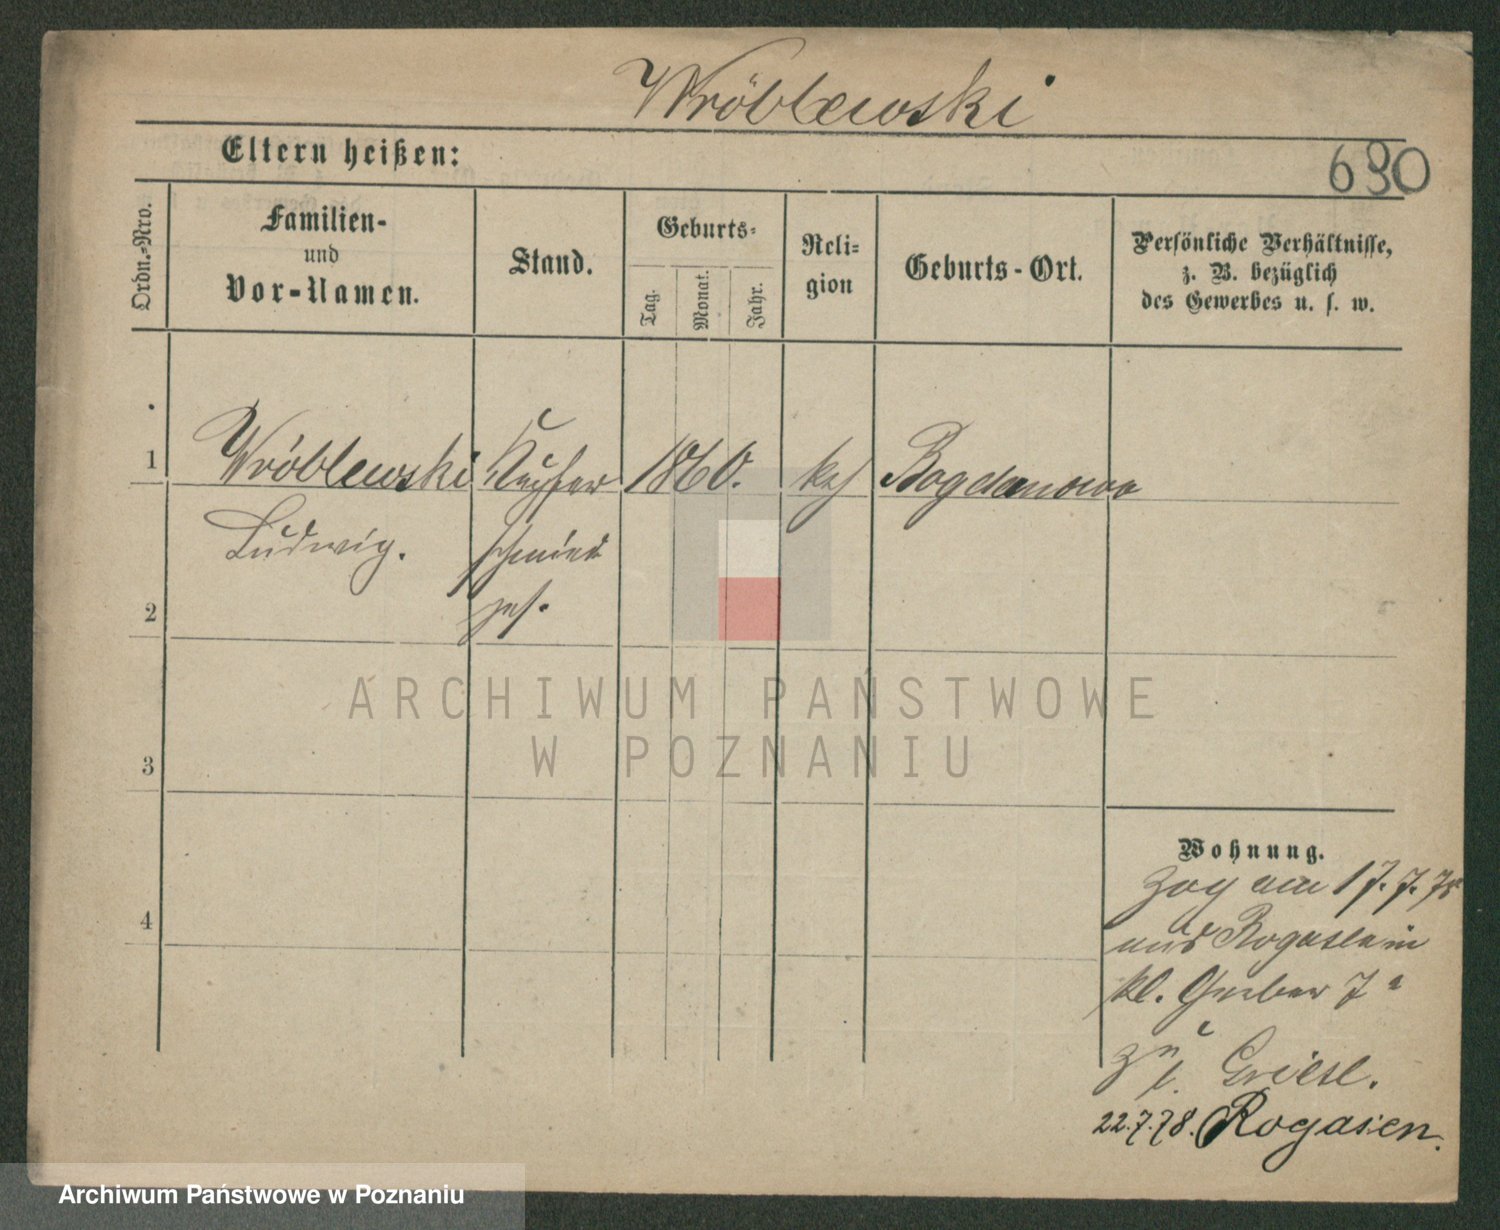 Wróblewski
Eltern heißen:
690
Ordn.-Nro.
Familien-
und
Vor-Namen.
Stand.
Geburts-
Tag.
Monat.
Jahr.
Reli-
gion
Geburts-Ort.
Persönliche Verhältnisse,
z. B. bezüglich
des Gewerbes u. s. w.
1
Wróblewski Kupfer 1860. kth Bogdanowo
Ludwig. schmied
ges.
2
ARCHIWUM PAŃSTWOWE
W POZNANIU
3
Wohnung.
4
zog am 17.7.78
aus Rogasen in
kl. Gerber 7a
zu
22.7.78. Rogasen.
Archiwum Państwowe w Poznaniu